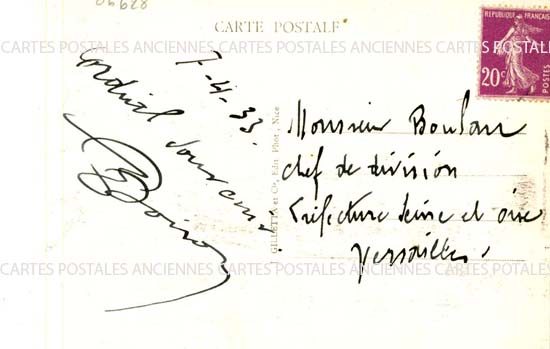 06628
CARTE POSTALE
RÉPUBLIQUE FRANÇAISE
20c
POSTES
CARTES POSTALES ANCIENNES CARTES POSTALES ANCIENNES CARTES POSTALES
7-4-33.
Cordial souvenir
GILLETTA et Cie, Edit. Phot., Nice
Monsieur
chef de division
Préfecture Seine et Oise
Versailles
CARTES POSTALES ANCIENNES CARTES POSTALES ANCIENNES CARTES POSTALES